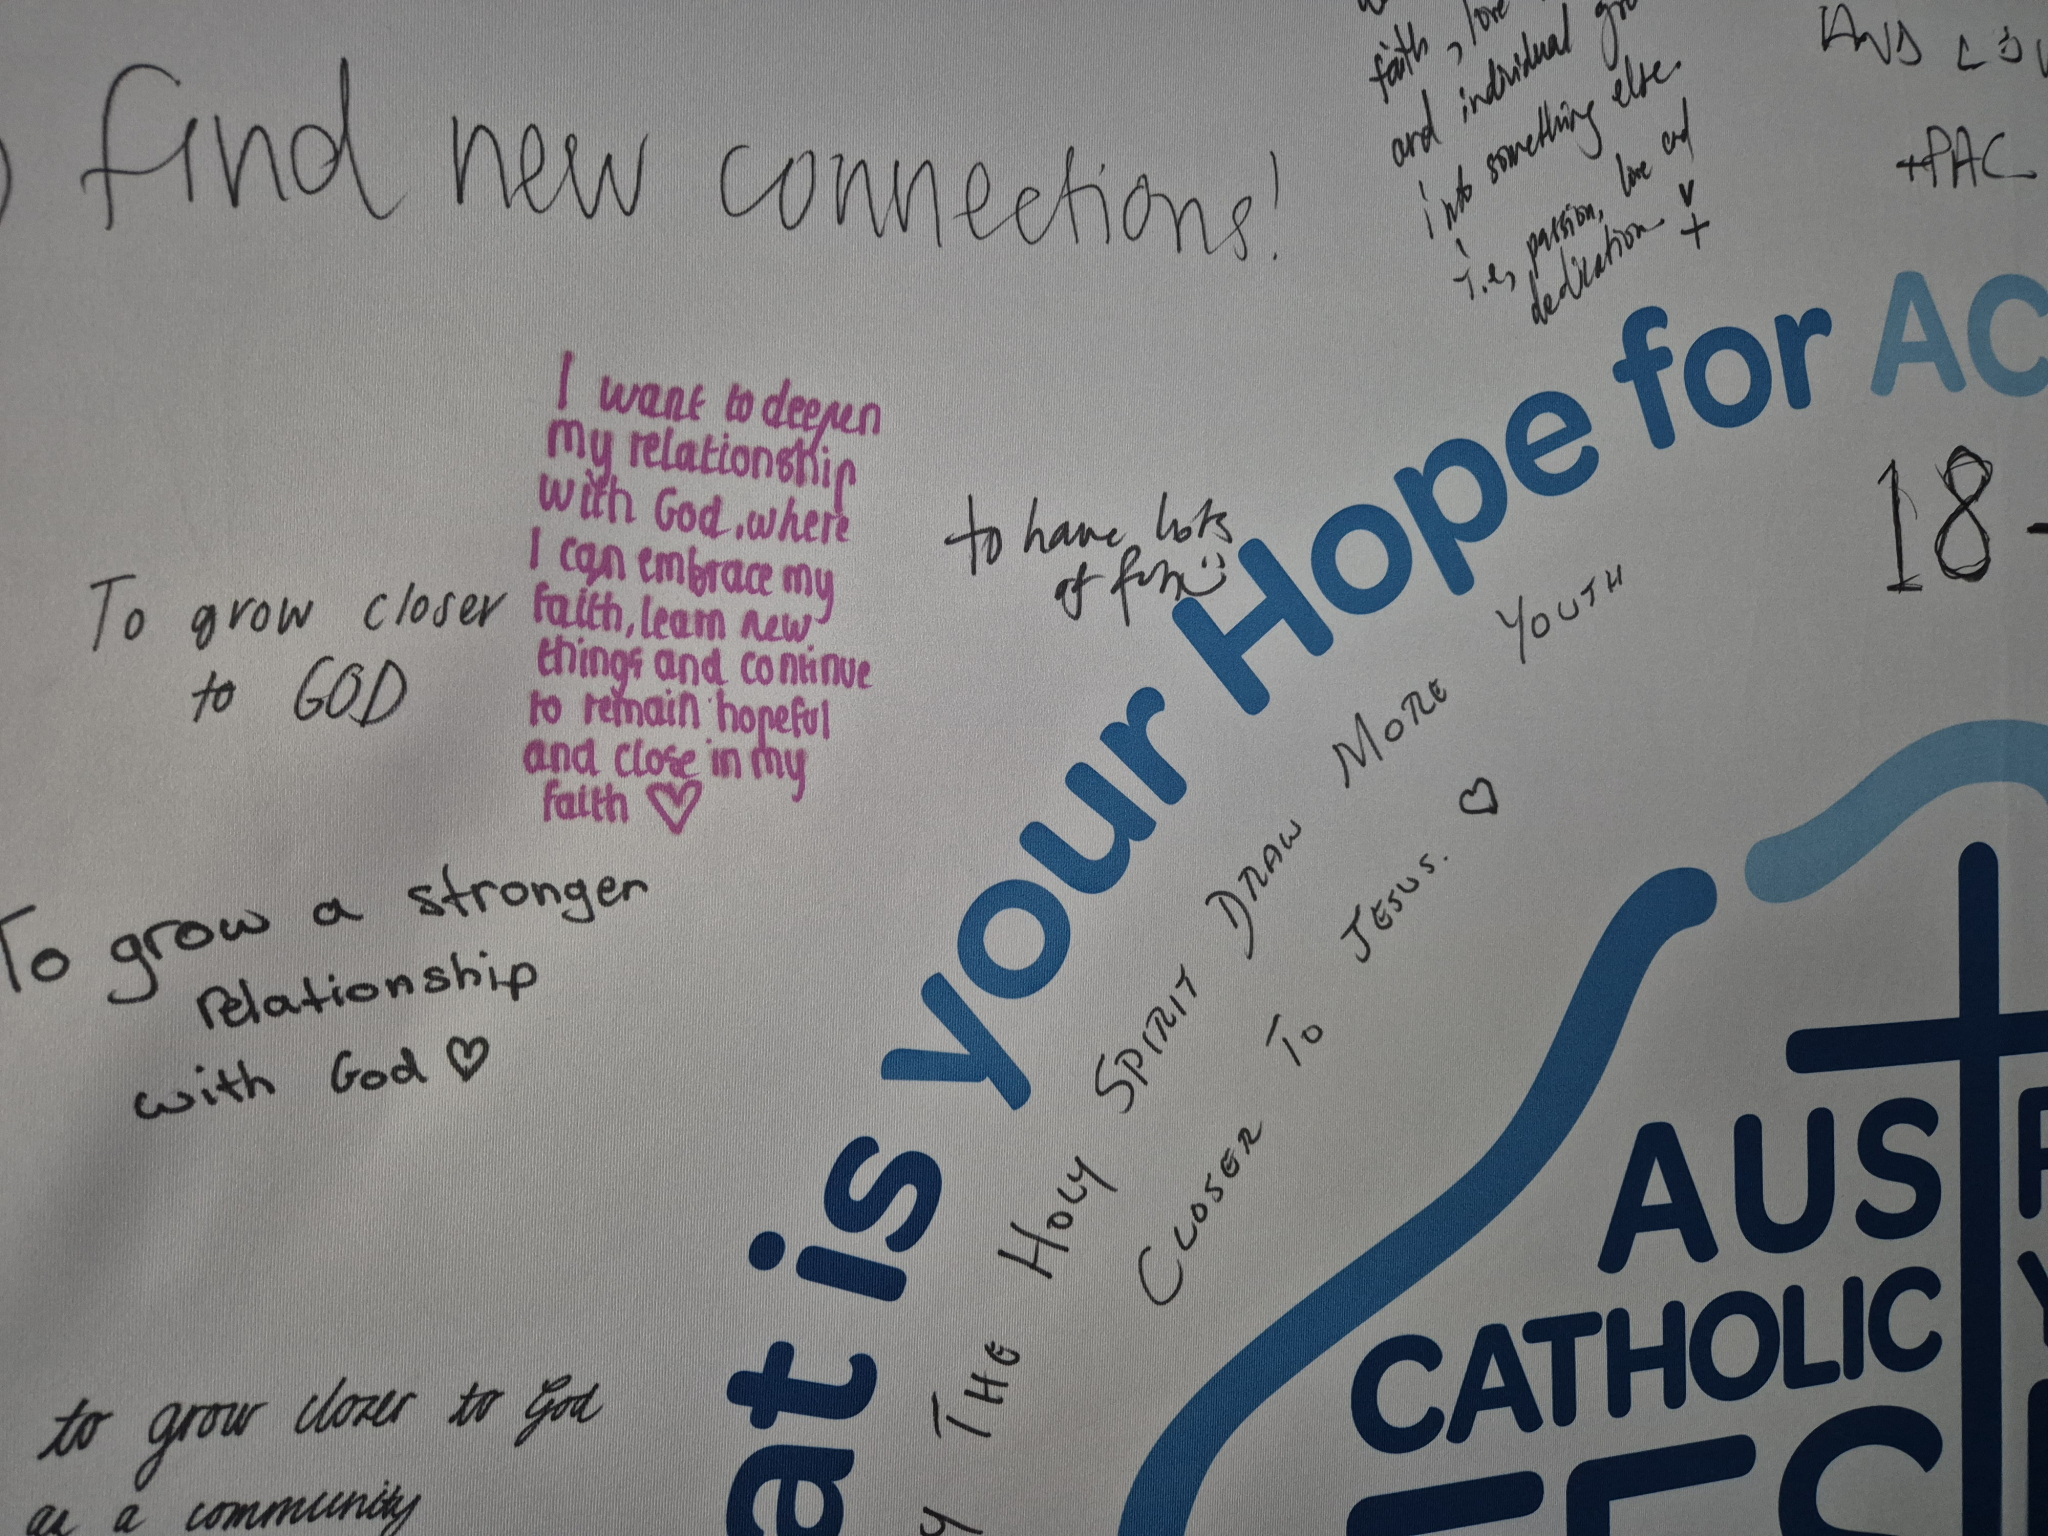 find new connections!
faith, love
and individual
into something else.
i.e, passion, love and
dedication
+PAC
I want to deepen
my relationship
with God, where
I can embrace my
faith, learn new
things and continue
to remain hopeful
and close in my
faith ♡
To grow closer
to GOD
to have lots
of fun
at is your Hope for AC
18-
To grow a stronger
relationship
with God ♡
THE HOLY SPIRIT DRAW MORE YOUTH
CLOSER TO JESUS. ♡
to grow closer to God
as a community
AUS
CATHOLIC